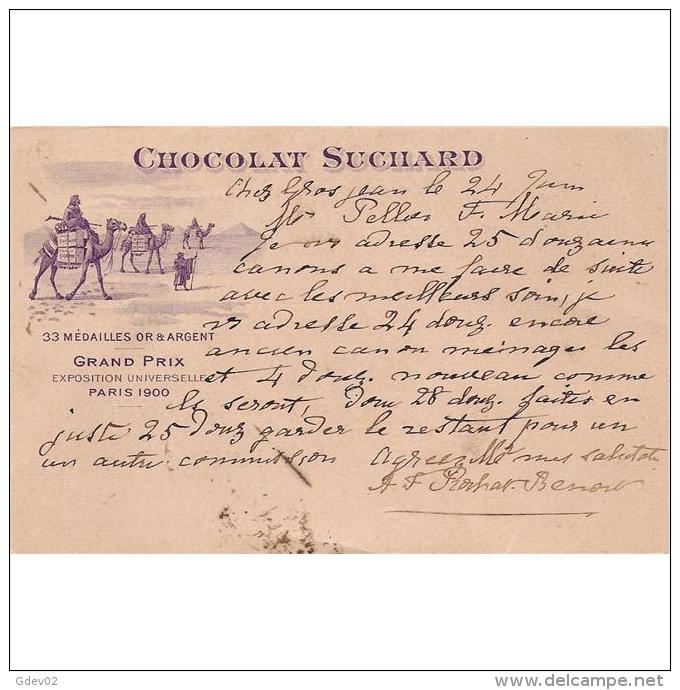 CHOCOLAT SUCHARD
Chez Gros jean le 24 Juin
Mr F. Marie
Je vs adresse 25 douzaine
canons a me faire de suite
avec les meilleurs soin, je
vs adresse 24 douz. encore
ancien canon ménages les
et 4 douz. nouveau comme
ils seront, Donc 28 douz. faites en
juste 25 douz garder le restant pour un
un autre commission agreez Mr mes salutat.
A F Rochat-Benoit
33 MÉDAILLES OR & ARGENT
GRAND PRIX
EXPOSITION UNIVERSELLE
PARIS 1900
Gdev02
delcampe.net